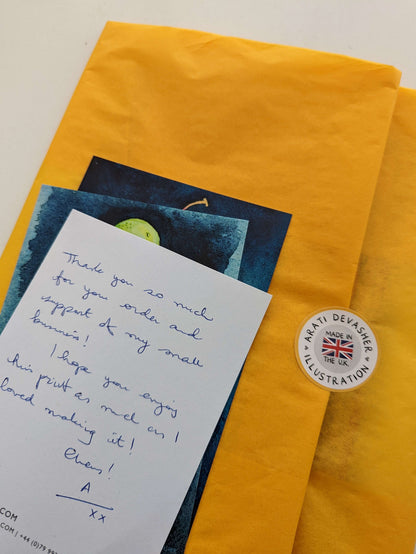 Thank you so much
for your order and
support of my small
business!
I hope you enjoy
this print as much as I
loved making it!
Cheers!
A
xx
.COM
.COM | +44 (0)79
ARATI DEVASHER
MADE IN
THE U.K
ILLUSTRATION